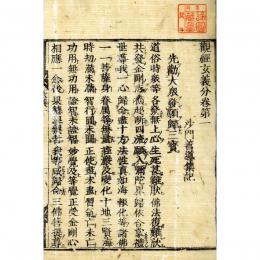 觀經玄義分卷第一
沙門善導集記
先勸大眾發願歸三寶
道俗時眾等各發無上心生死甚難厭佛法復難欣
共發金剛志橫超斷四流願入彌陀界歸依合掌禮
世尊我一心歸命盡十方法性真如海報化等諸佛
一一菩薩身眷屬等無量莊嚴及變化十地三賢海
時劫滿未滿智行圓未圓正使盡未盡習氣亡未亡
功用無功用證智未證智妙覺及等覺正受金剛心
相應一念後果德涅槃者我等咸歸命三佛菩提尊